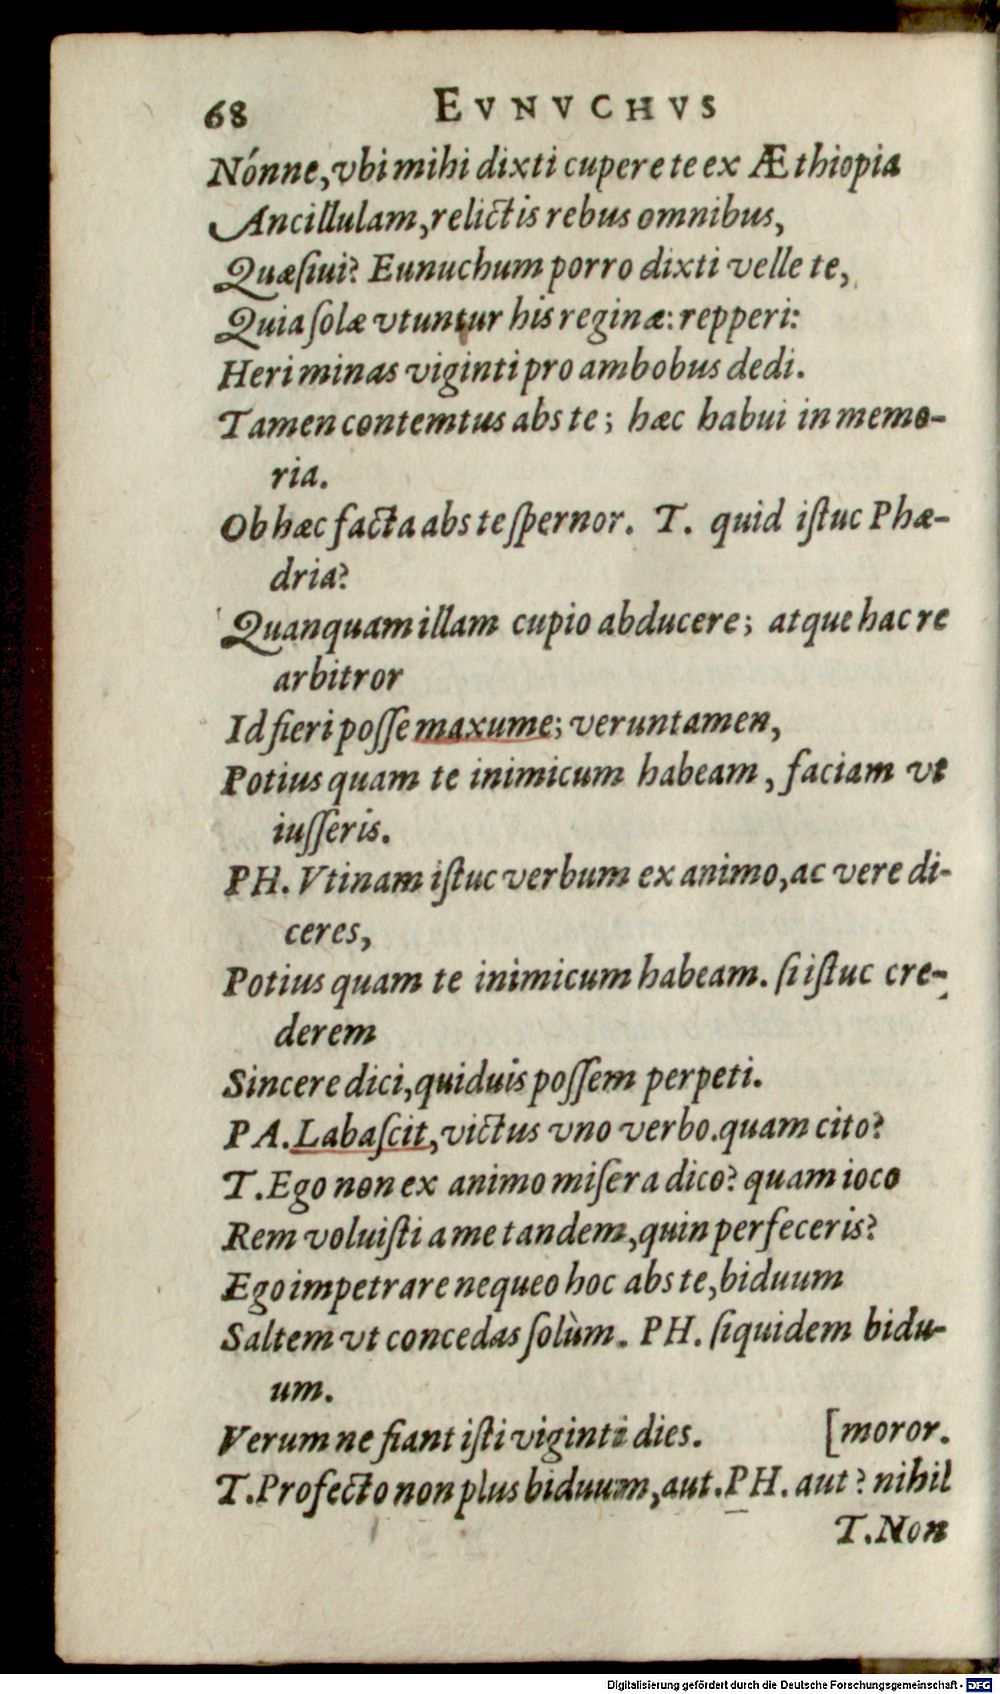 68 EVNVCHVS
Nónne, vbi mihi dixti cupere te ex Æthiopia
Ancillulam, relictis rebus omnibus,
Quæſiui? Eunuchum porro dixti velle te,
Quia ſolæ vtuntur his reginæ: repperi:
Heri minas viginti pro ambobus dedi.
Tamen contemtus abs te; hæc habui in memo-
ria.
Ob hæc facta abs te ſpernor. T. quid iſtuc Phæ-
dria?
Quanquam illam cupio abducere; atque hac re
arbitror
Id fieri poſſe maxume; veruntamen,
Potius quam te inimicum habeam, faciam vt
iuſſeris.
PH. Vtinam iſtuc verbum ex animo, ac vere di-
ceres,
Potius quam te inimicum habeam. ſi iſtuc cre-
derem
Sincere dici, quiduis poſſem perpeti.
PA. Labaſcit, victus vno verbo. quam cito?
T. Ego non ex animo miſera dico? quam ioco
Rem voluiſti a me tandem, quin perfeceris?
Ego impetrare nequeo hoc abs te, biduum
Saltem vt concedas ſolùm. PH. ſiquidem bidu-
um.
Verum ne fiant iſti viginti dies. [moror.
T. Profecto non plus biduum, aut. PH. aut? nihil
T. Non
Digitalisierung gefördert durch die Deutsche Forschungsgemeinschaft - DFG